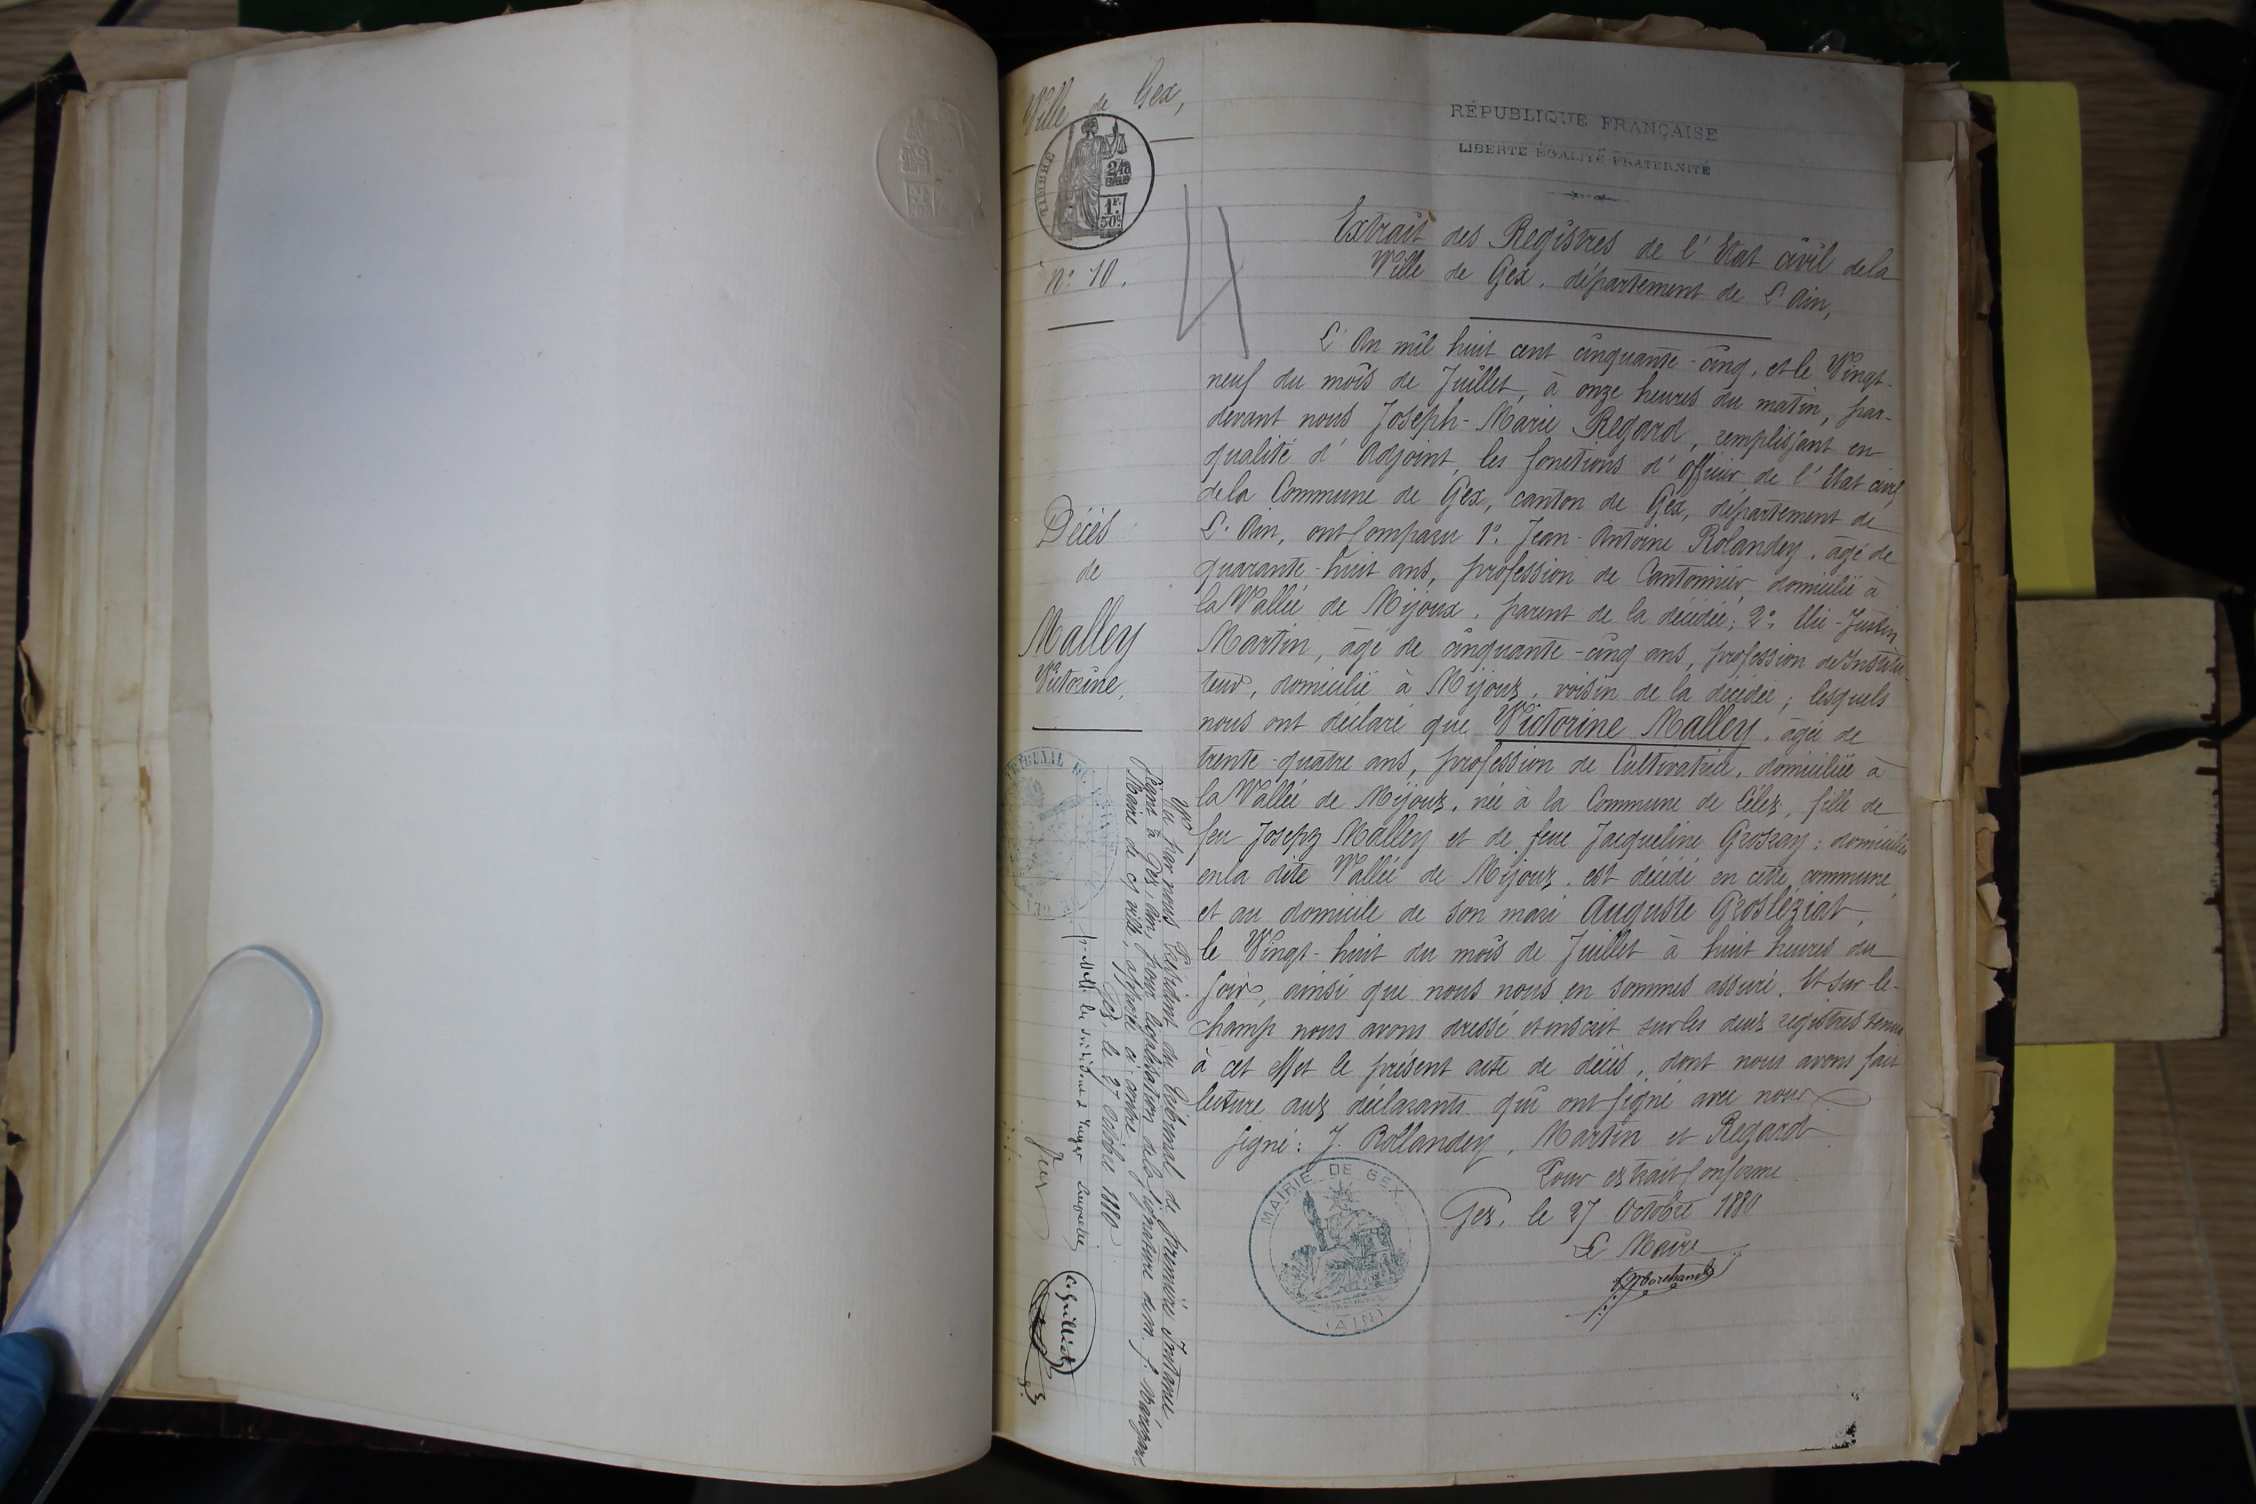 Ville de Gex,
TIMBRE
2/10
1F.
50c
N: 10.
4
RÉPUBLIQUE FRANÇAISE
LIBERTÉ ÉGALITÉ FRATERNITÉ
Extrait des Registres de l'Etat civil de la
Ville de Gex, département de L'Ain,
L'An mil huit cent cinquante-cinq, et le Vingt-
neuf du mois de Juillet, à onze heures du matin, par-
devant nous Joseph-Marie Regard, remplissant en
qualité d'Adjoint, les fonctions d'Officier de l'Etat civil
de la Commune de Gex, canton de Gex, département de
L'Ain, ont comparu 1º. Jean-Antoine Rolandey, âgé de
quarante-huit ans, profession de Cantonnier, domicilié à
la Vallée de Mijoux, parent de la décédée; 2º. Elie-Justin
Martin, âgé de cinquante-cinq ans, profession de Institu-
teur, domicilié à Mijoux, voisin de la décédée; lesquels
nous ont déclaré que Victorine Malley, âgée de
trente-quatre ans, profession de Cultivatrice, domiciliée à
la Vallée de Mijoux, née à la Commune de Lélex, fille de
feu Joseph Malley et de feue Jacqueline Grosray; domiciliés
en la dite Vallée de Mijoux, est décédé en cette commune,
et au domicile de son mari Auguste Grosléziat,
le Vingt-huit du mois de Juillet à huit heures du
soir, ainsi que nous nous en sommes assuré. Et sur-le-
champ nous avons dressé et inscrit sur les deux registres tenus
à cet effet le présent acte de décès, dont nous avons fait
lecture aux déclarants qui ont signé avec nous
signé: J. Rollandey, Martin et Regard
Pour extrait conforme
Gex, le 27 Octobre 1880
Le Maire
MAIRIE DE GEX
(AIN)
Décès
de
Malley
Victorine,
TRIBUNAL DE
Vu par nous Président du Tribunal de première Instance
séant à Gex, Ain, pour légalisation de la signature de M.
Maire de cette ville, apposée ci-contre
Gex, le 27 Octobre 1880